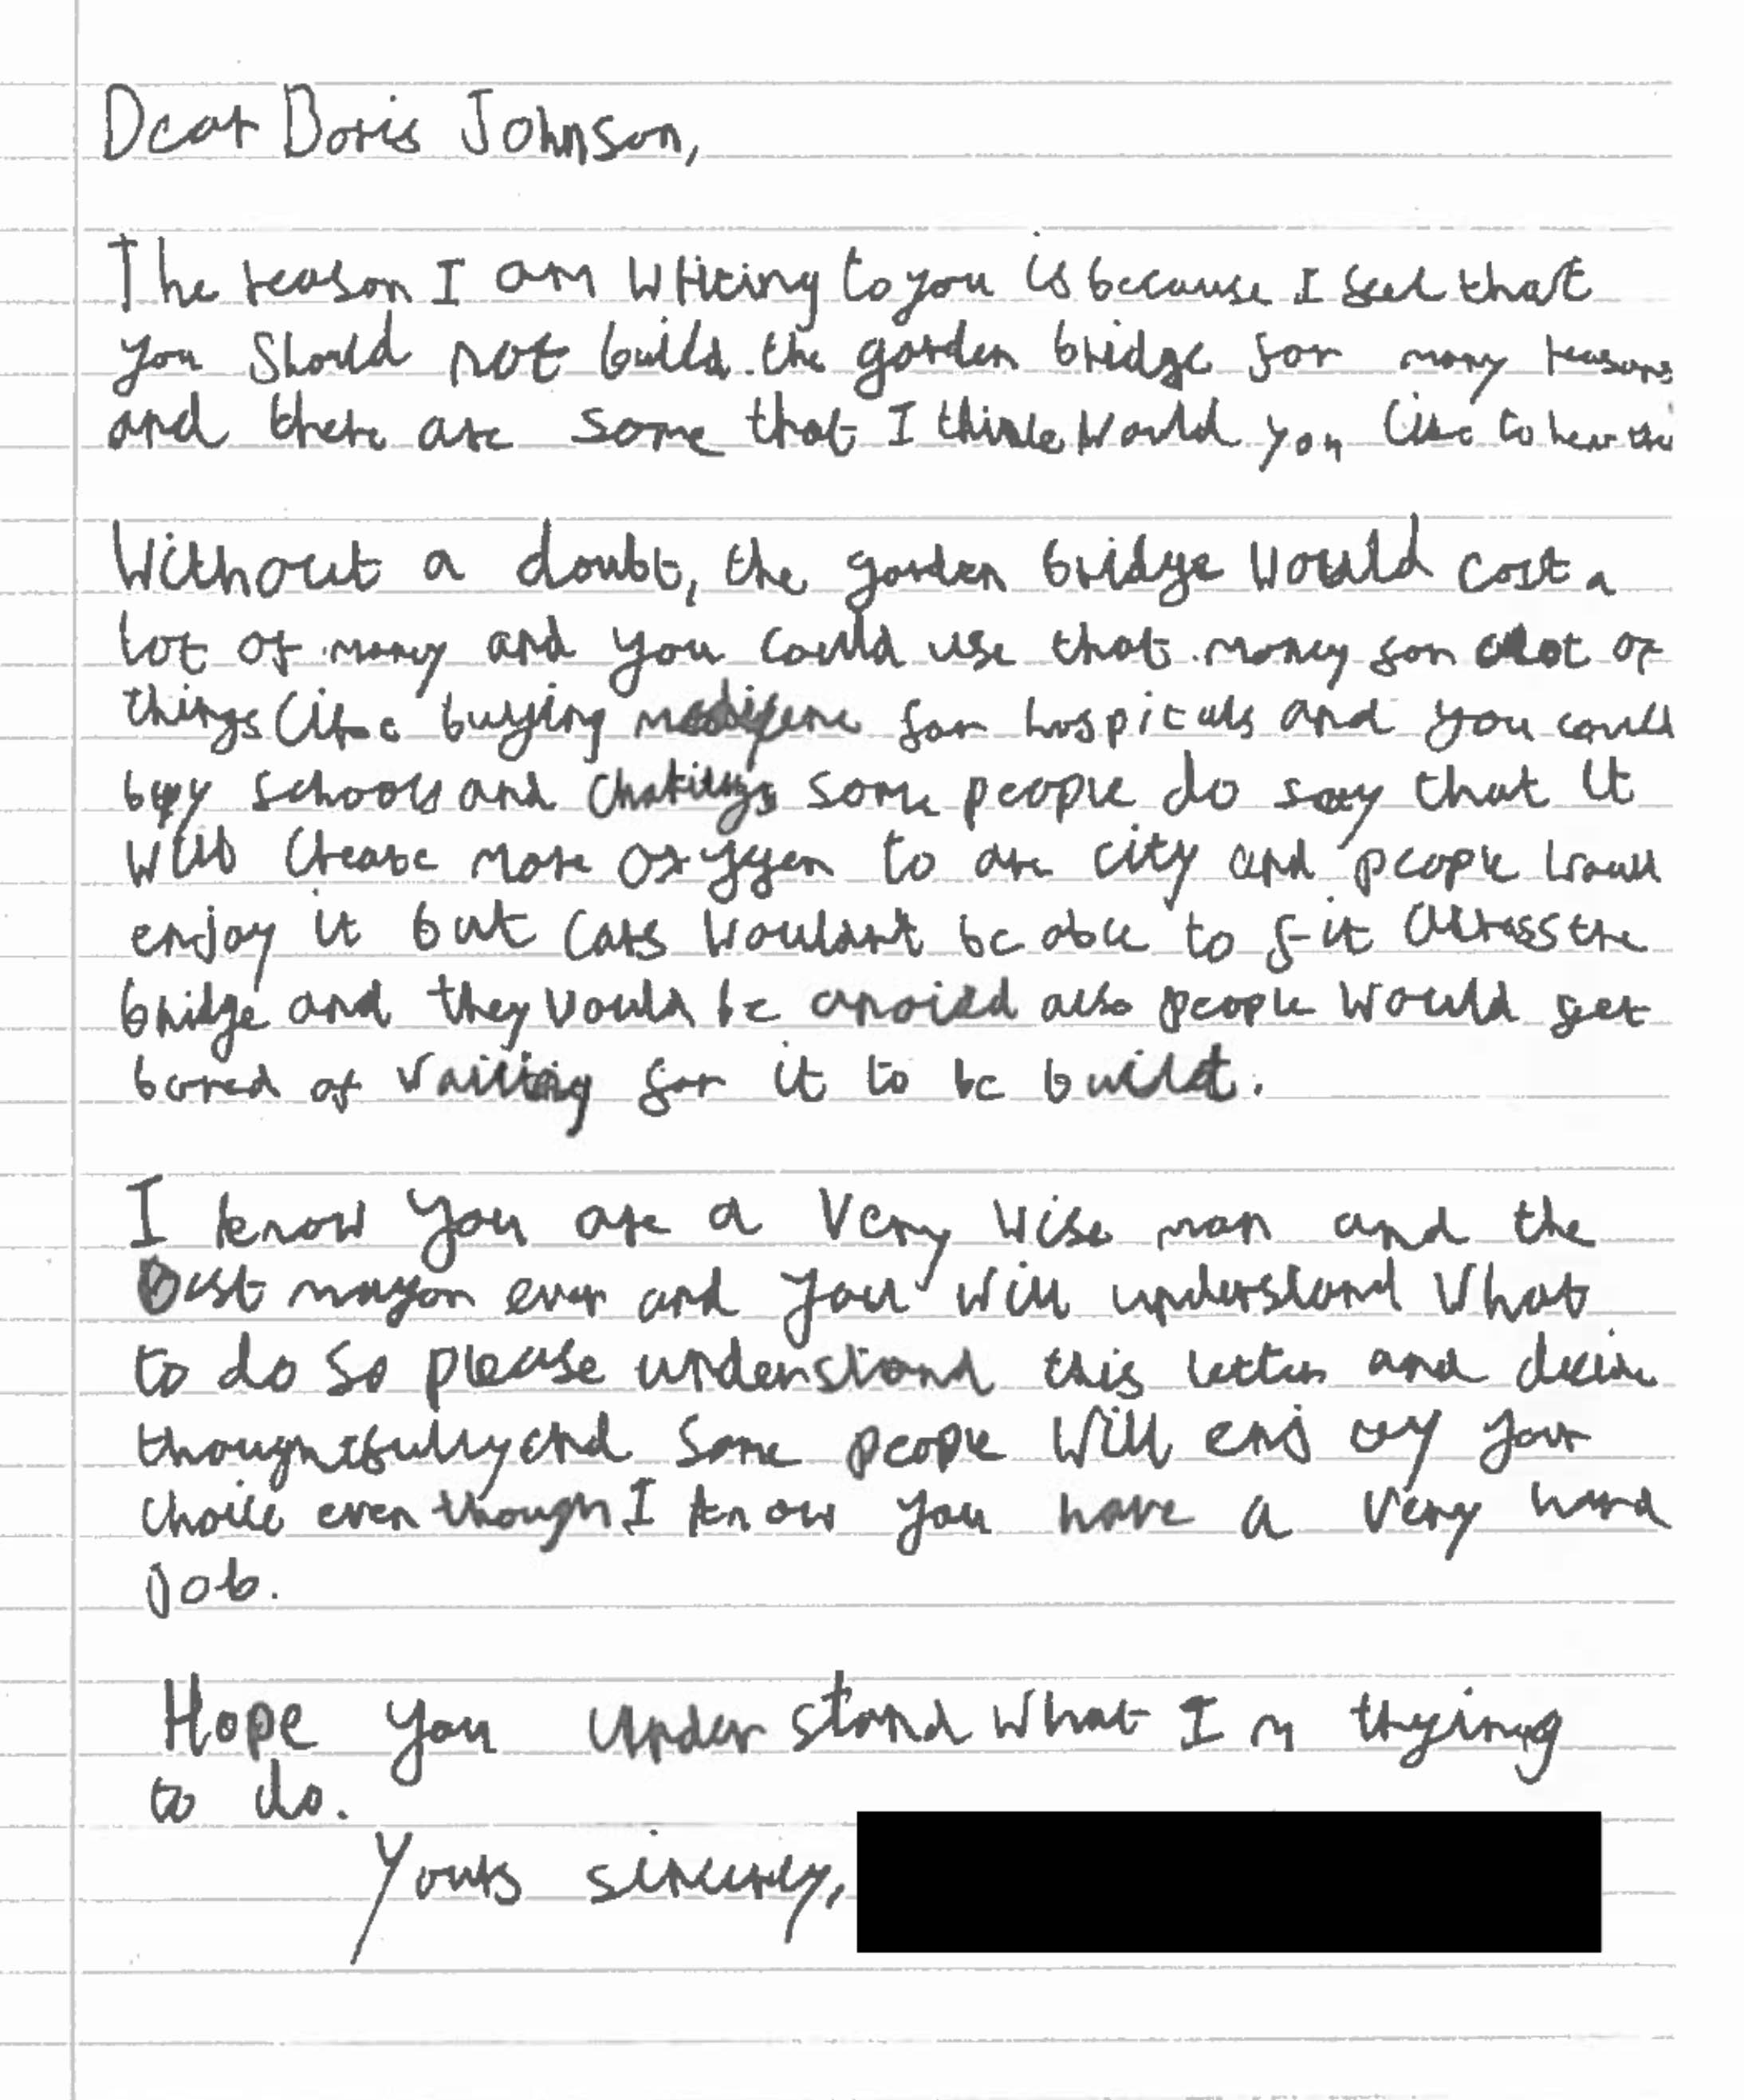 Dear Boris Johnson,
The reason I am writing to you is because I feel that
you Should not build the garden bridge for many reasons
and there are some that I think would you like to hear the
Without a doubt, the garden bridge would cost a
lot of money and you could use that money for alot of
things like buying for hospitals and you could
buy schools and some people do say that it
will create more oxygen to are city and people would
enjoy it but cars wouldnt be able to fit across the
bridge and they would be anoied also people would get
bored of waiting for it to be built.
I know you are a very wise man and the
best mayor ever and you will understand what
to do so please understand this letter and decide
thoughtfully and some people will enjoy your
choice even though I know you have a very hard
job.
Hope you understand what Im trying
to do.
Yours sincerely,